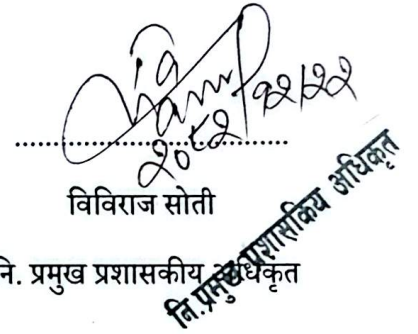 २०८२/१२/२२
विविराज सोती
नि. प्रमुख प्रशासकीय अधिकृत
नि.प्रमुख प्रशासकिय अधिकृत